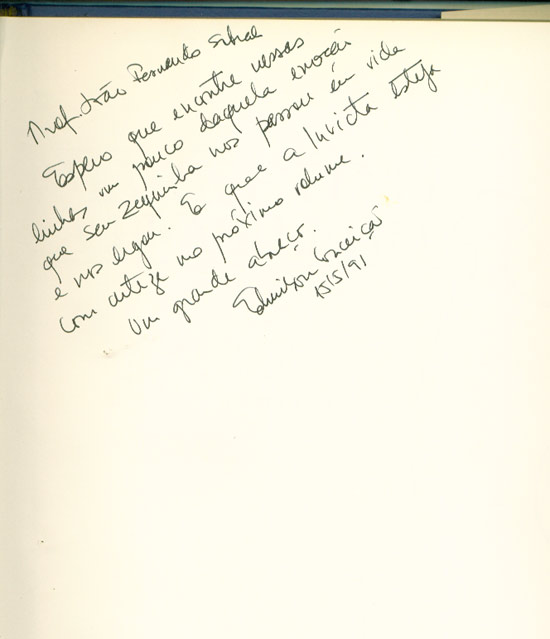 Prof. João Fernando Sobral
Espero que encontre nessas
linhas um pouco daquela emoção
que seu Zequinha nos passou em vida
e nos legou. E que a Invicta esteja
com certeza no próximo volume.
Um grande abraço.
Edmilson Conceição
15/5/91